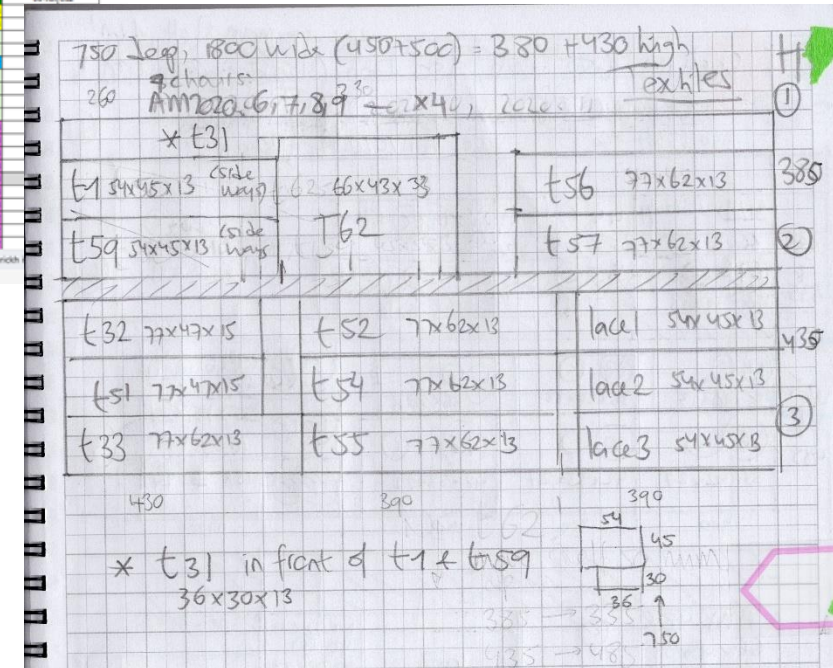 750 deep, 1800 wide (450+500) = 380 +430 high
H
4 chairs:
textiles
260 AM2020.6,7,8,9 x4,
①
* t31
t1 54x45x13 (side ways)
66x43x33
t56 77x62x13
385
t59 54x45x13 (side ways)
T62
t57 77x62x13
②
t32 77x47x15
t52 77x62x13
lace1 54x45x13
435
t51 77x47x15
t54 77x62x13
lace2 54x45x13
③
t33 77x62x13
t55 77x62x13
lace3 54x45x13
430
390
390
* t31 in front of t1 & t59
36x30x13
54
45
30
36
750
385 → 335
435 → 485